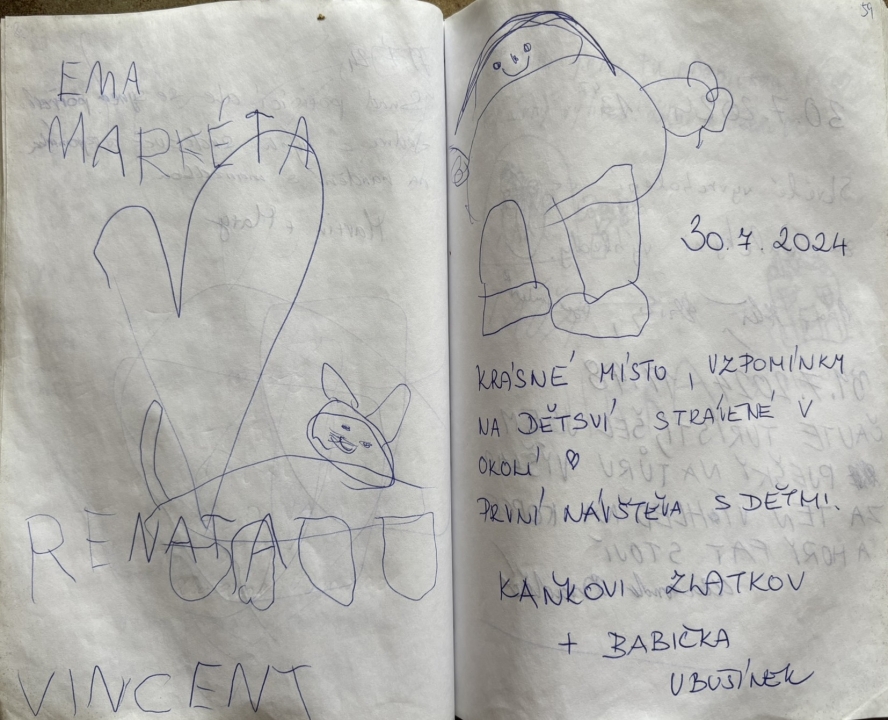 EMA
MARKÉTA
RENATA
VINCENT
59
30.7.2024
KRÁSNÉ MÍSTO, VZPOMÍNKY
NA DĚTSVÍ STRÁVENÉ V
OKOLÍ ♡
PRVNÍ NÁVŠTĚVA S DĚTMI.
KAŇKOVI ZLATKOV
+ BABIČKA
UBUŠÍNEK